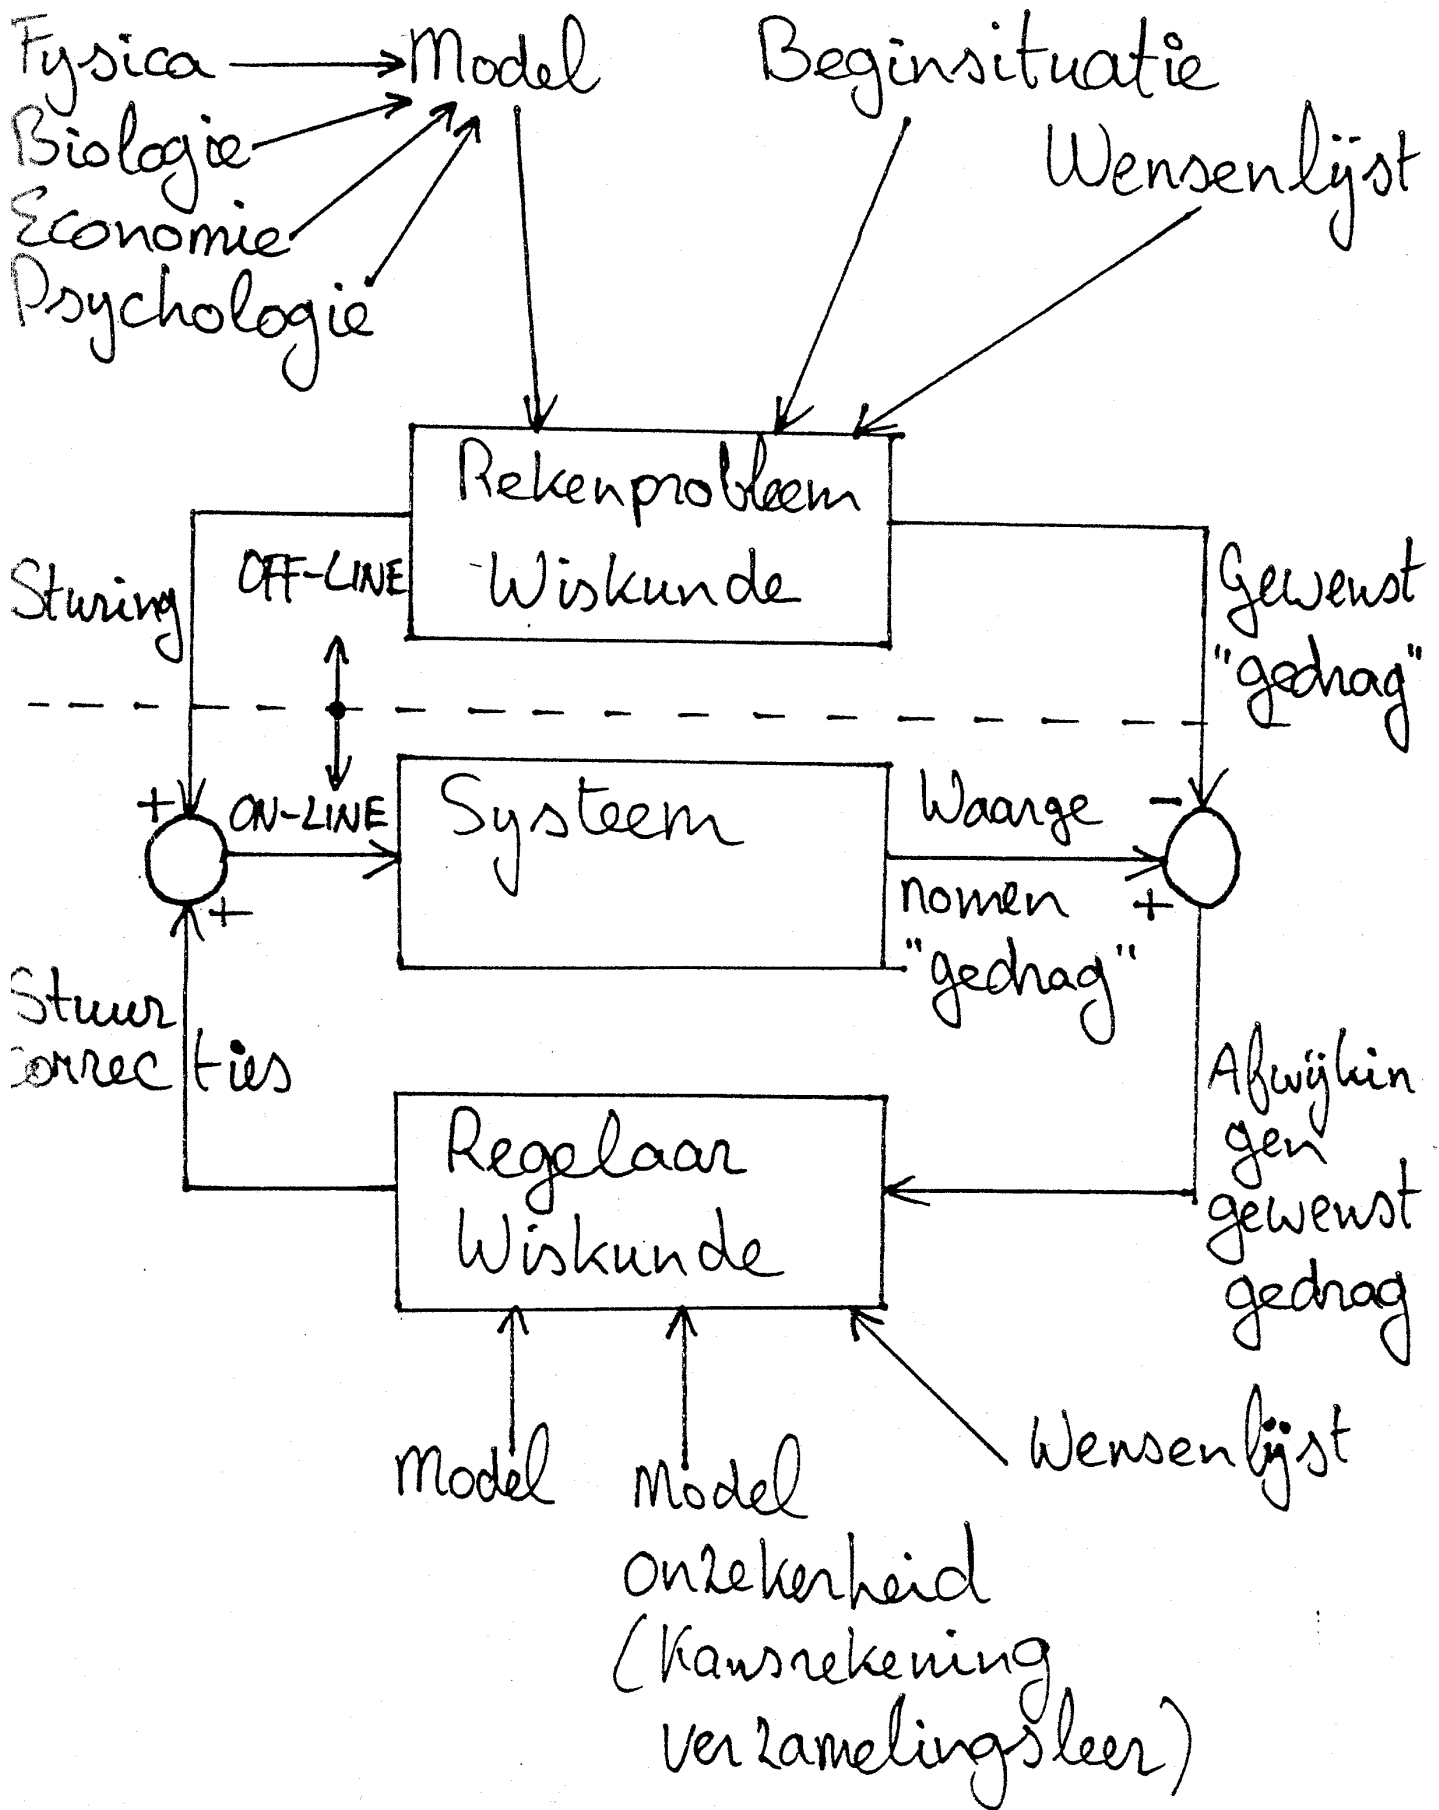 Fysica
Biologie
Economie
Psychologie
Model
Beginsituatie
Wensenlijst
Rekenprobleem
Wiskunde
Sturing
OFF-LINE
Gewenst
"gedrag"
+
ON-LINE
Systeem
Waarge
nomen
"gedrag"
-
+
+
Stuur
correcties
Regelaar
Wiskunde
Afwijkin
gen
gewenst
gedrag
Model
Model
onzekerheid
(Kansrekening
verzamelingsleer)
Wensenlijst